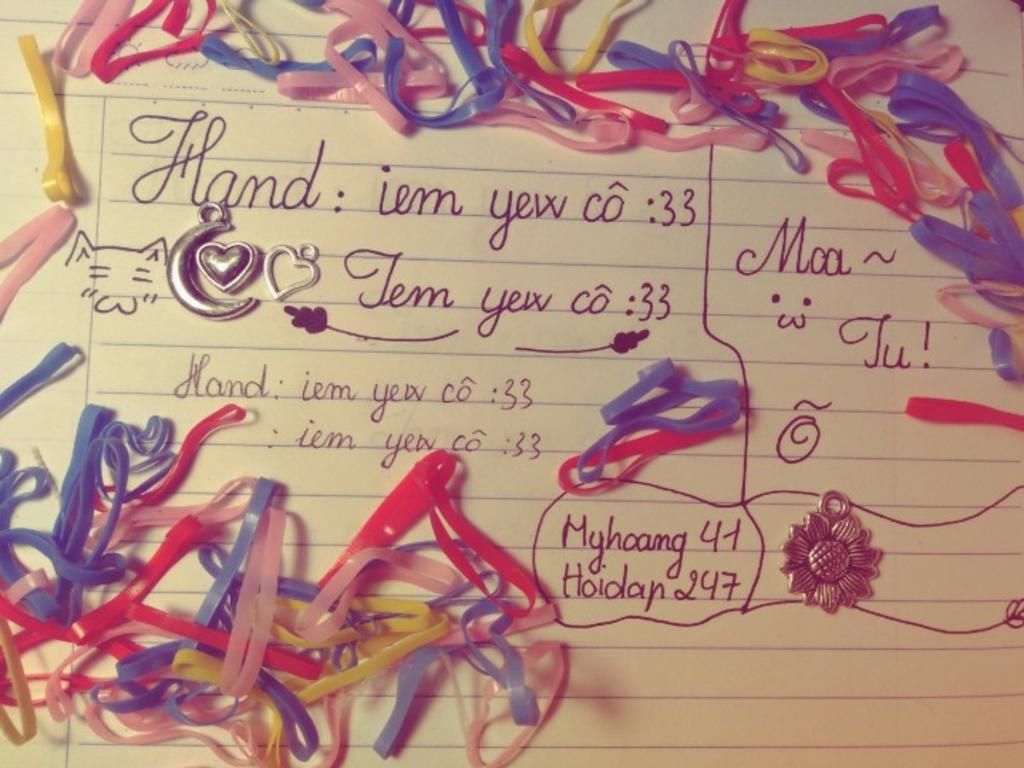 Hand: iem yew cô :33
Iem yew cô :33
Hand: iem yew cô :33
: iem yew cô :33
Moa ~
:ω:
Tu!
Õ
Myhoang 41
Hoidap 247